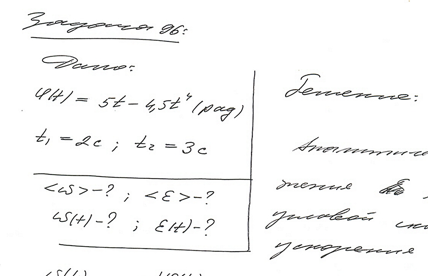 Задача 96:
Дано:
φ(t) = 5t - 4,5t⁴ (рад)
t₁ = 2c ; t₂ = 3c
<ω> - ? ; <ε> - ?
ω(t) - ? ; ε(t) - ?
Решение:
Аналитиче
жения
угловой ск
ускорения